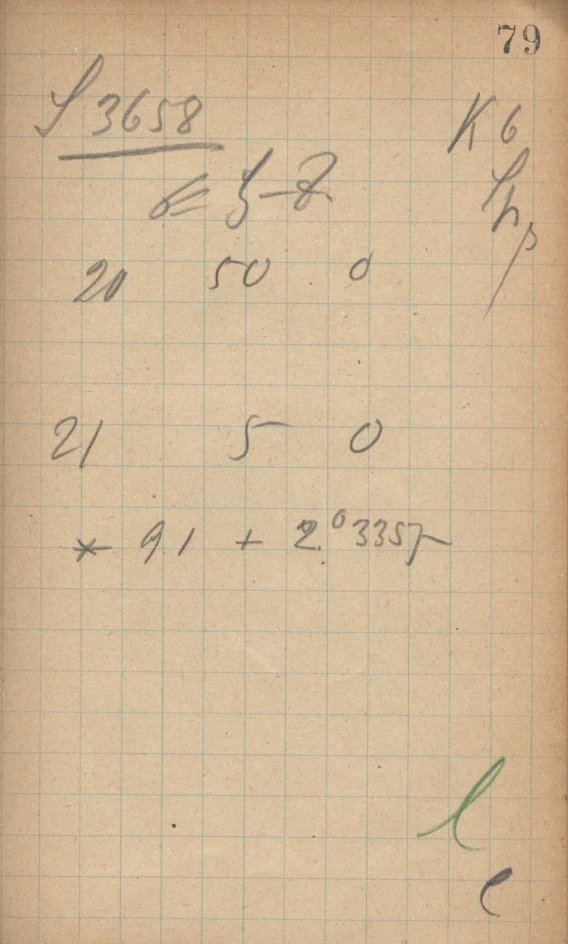 79
S 3658
K 6
20 50 0
21 5 0
* 91 + 2.°3357
l
e